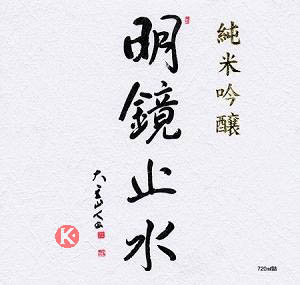 純米吟醸
明鏡止水
720ml詰